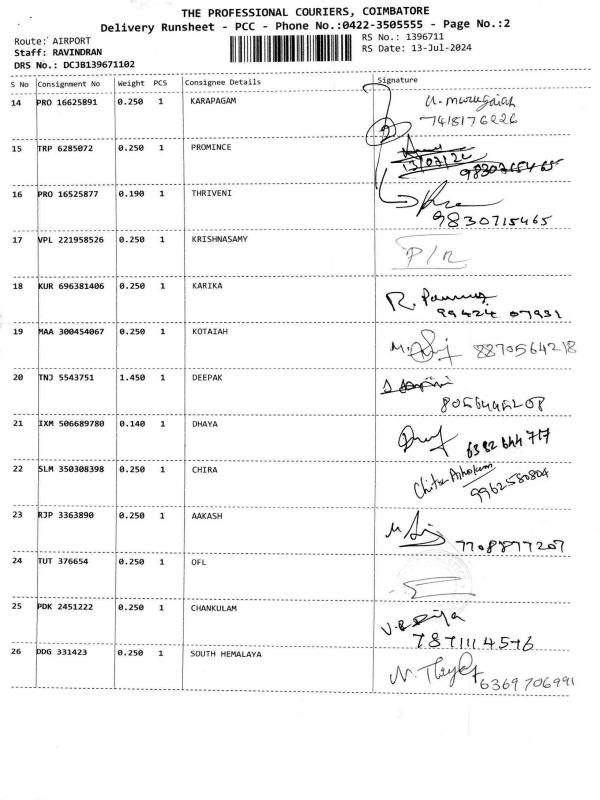 THE PROFESSIONAL COURIERS, COIMBATORE
Delivery Runsheet - PCC - Phone No.:0422-3505555 - Page No.:2
Route: AIRPORT
RS No.: 1396711
Staff: RAVINDRAN
RS Date: 13-Jul-2024
DRS No.: DCJB139671102
S No Consignment No Weight PCS Consignee Details Signature
14 PRO 16625891 0.250 1 KARAPAGAM U. Murugaiah
7418176226
15 TRP 6285072 0.250 1 PROMINCE
13/07/24
9830715465
16 PRO 16525877 0.190 1 THRIVENI
9830715465
17 VPL 221958526 0.250 1 KRISHNASAMY P/R
18 KUR 696381406 0.250 1 KARIKA R.
99424 07931
19 MAA 300454067 0.250 1 KOTAIAH M. 8870564218
20 TNJ 5543751 1.450 1 DEEPAK
21 IXM 506689780 0.140 1 DHAYA 6382644717
22 SLM 350308398 0.250 1 CHIRA Chitra Ashokam
9962580804
23 RJP 3363890 0.250 1 AAKASH M
7708877207
24 TUT 376654 0.250 1 OFL
25 PDK 2451222 0.250 1 CHANKULAM V.B Divya
7871114576
26 DDG 331423 0.250 1 SOUTH HEMALAYA N.
6369706991